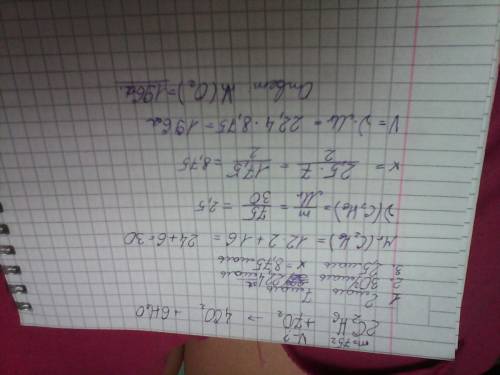 m=75г V-?
2C₂H₆ +7O₂ → 4CO₂ +6H₂O
1. 2 моль 7 моль
2. 30г/моль 22,4л/моль
3. 2,5 моль x=8,75 моль
Mr(C₂H₆)= 12·2+1·6= 24+6=30
ν(C₂H₆)= m/M = 75/30 = 2,5
x = 2,5·7/2 = 17,5/2 = 8,75
V=ν·Vm = 22,4·8,75=196л
Ответ V(O₂)=196л.